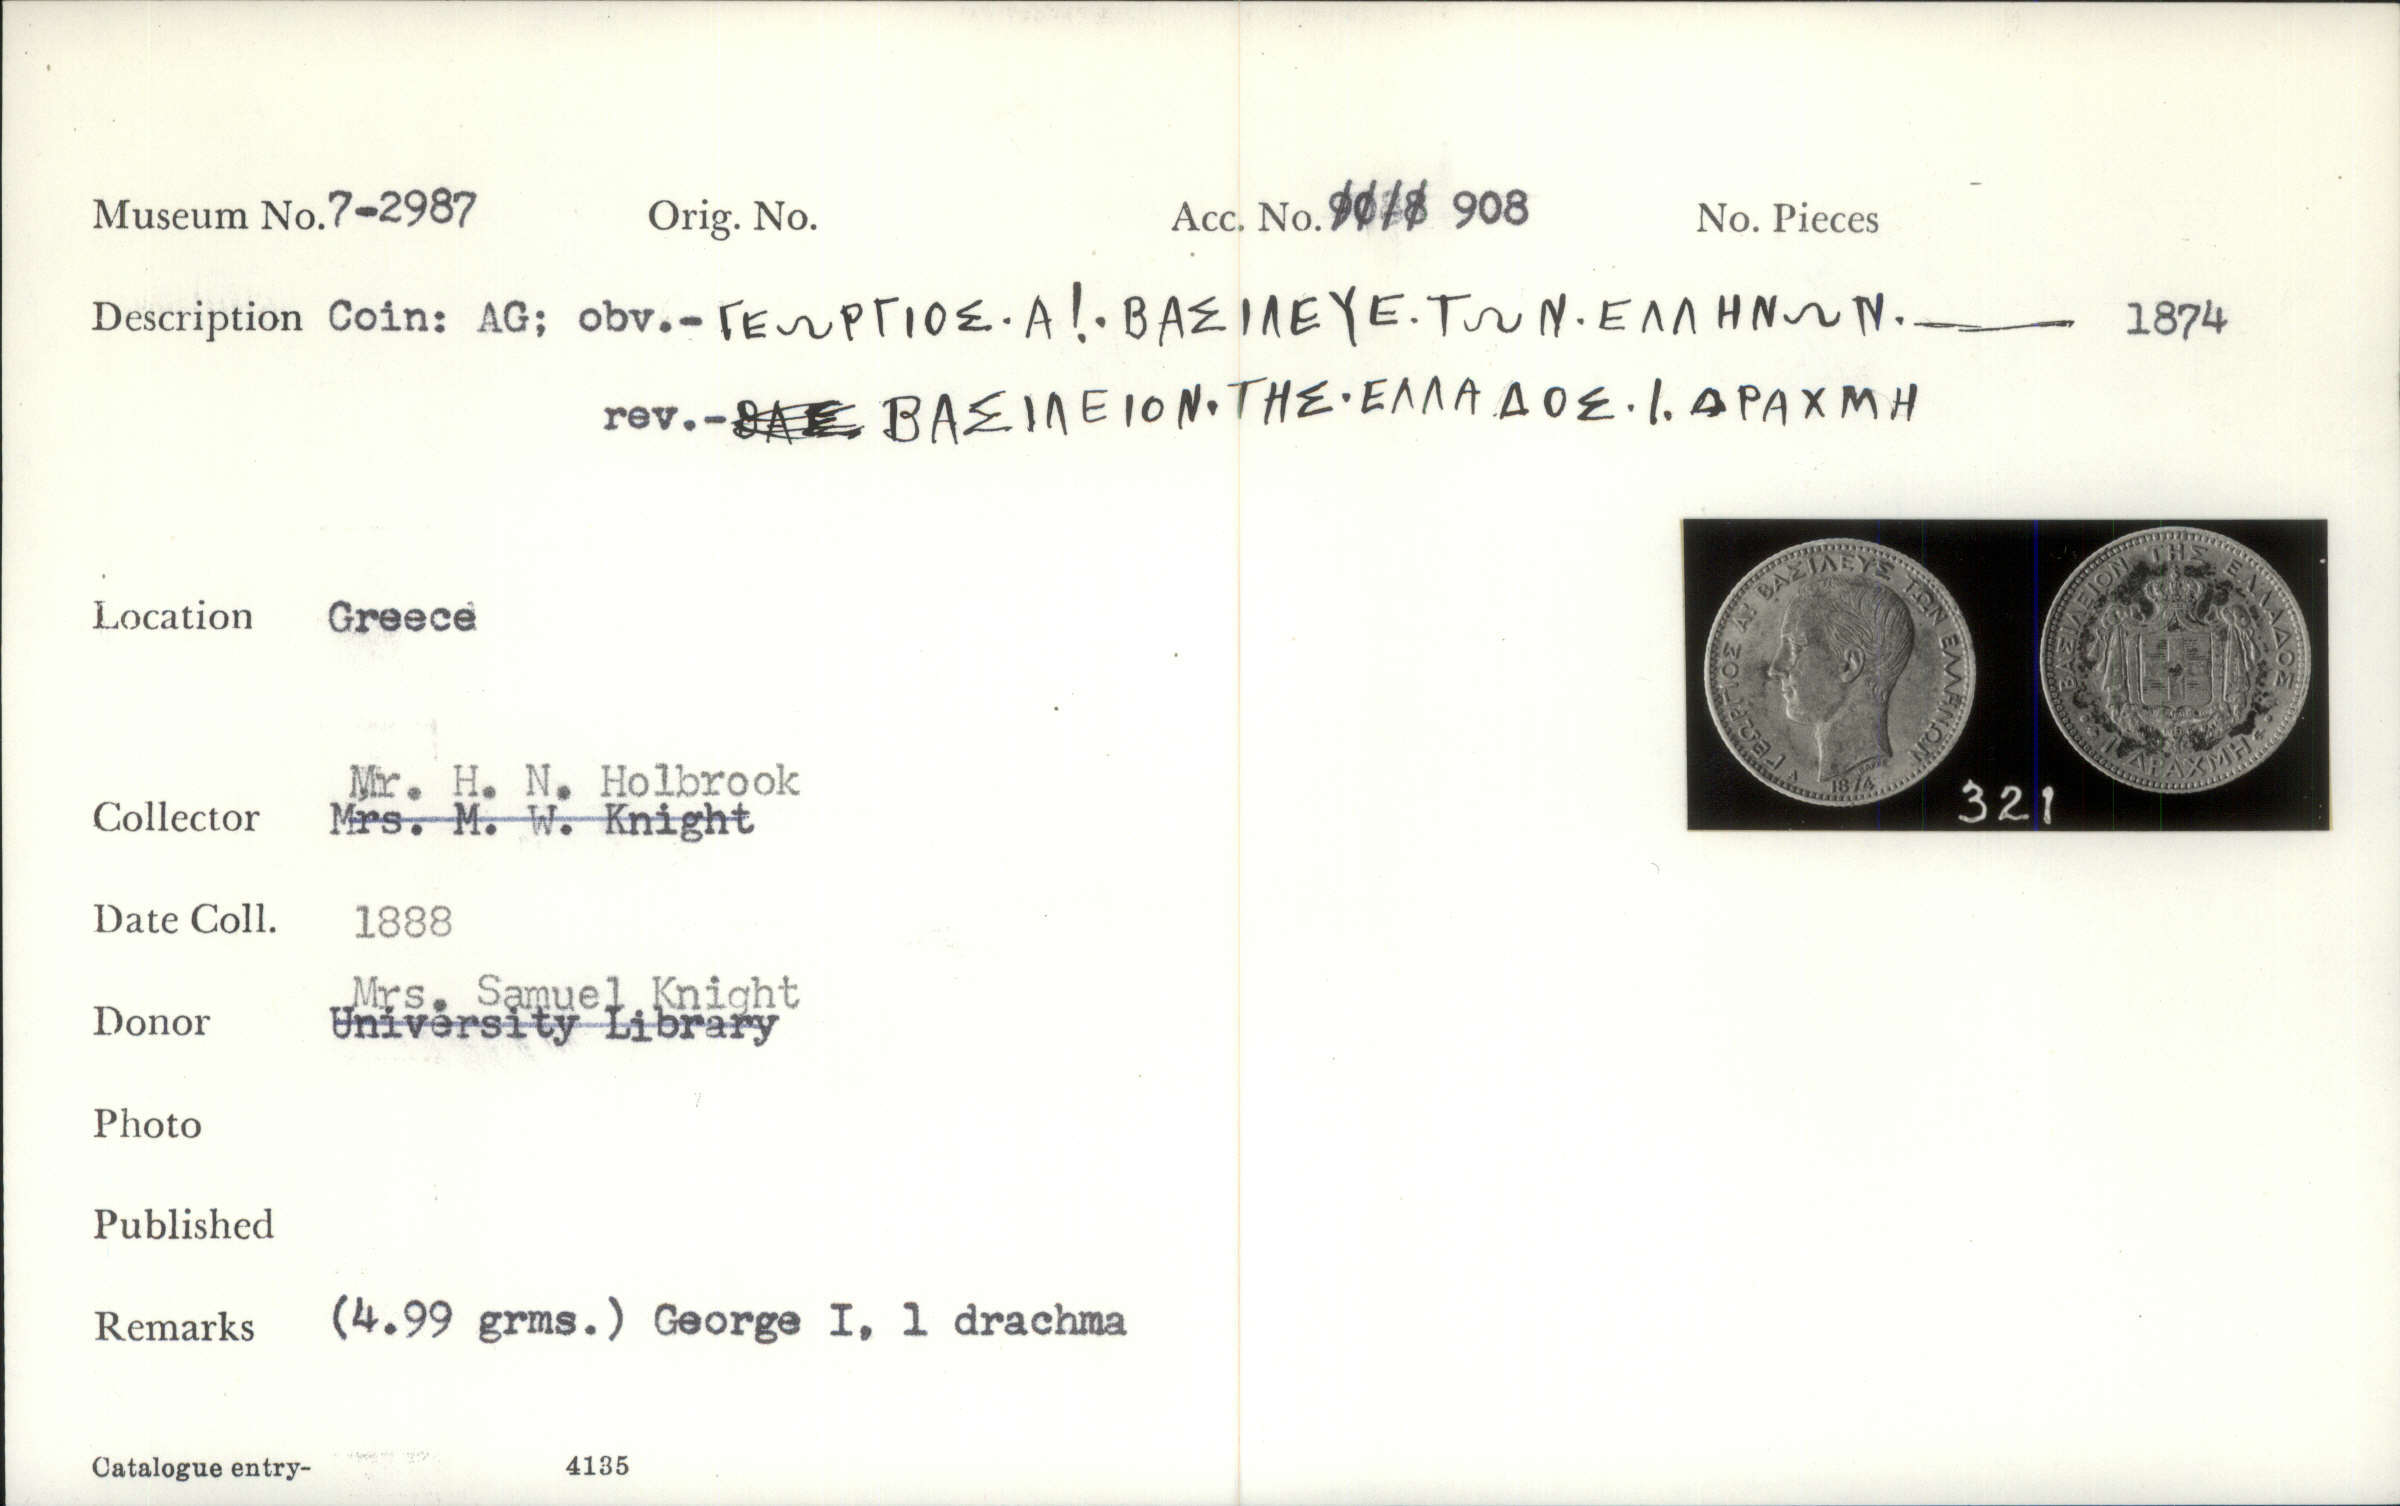 Museum No. 7-2987 Orig. No. Acc. No. 908 No. Pieces
Description Coin: AG; obv.- ΓΕΩΡΓΙΟΣ·Α!·ΒΑΣΙΛΕΥΕ·ΤΩΝ·ΕΛΛΗΝΩΝ.—— 1874
rev.- ΒΑΣΙΛΕΙΟΝ·ΤΗΣ·ΕΛΛΑΔΟΣ·Ι.ΔΡΑΧΜΗ
Location Greece
ΓΕΩΡΓΙΟΣ Α! ΒΑΣΙΛΕΥΣ ΤΩΝ ΕΛΛΗΝΩΝ
A 1874
ΒΑΣΙΛΕΙΟΝ ΤΗΣ ΕΛΛΑΔΟΣ
1 ΔΡΑΧΜΗ
321
Mr. H. N. Holbrook
Collector Mrs. M. W. Knight
Date Coll. 1888
Mrs. Samuel Knight
Donor University Library
Photo
Published
Remarks (4.99 grms.) George I, 1 drachma
Catalogue entry- 4135